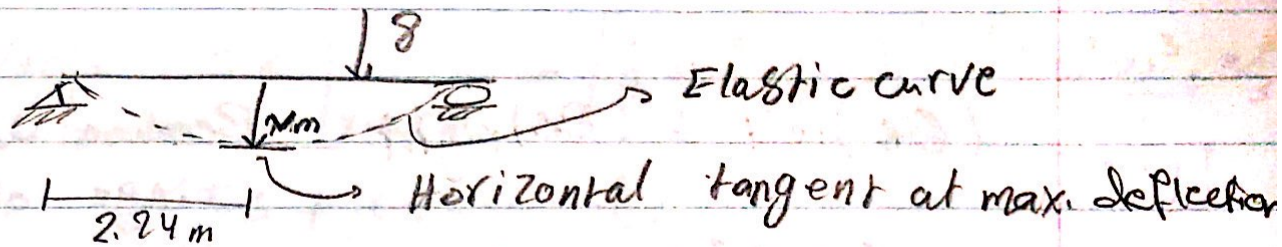 8
Elastic curve
Horizontal tangent at max. deflection
2.24 m